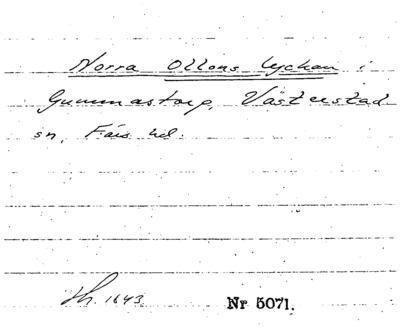 Norra Ollons lyckan i
Gummastorp, Västerstad
sn, Färs hd.
Lh. 1643. Nr 5071.